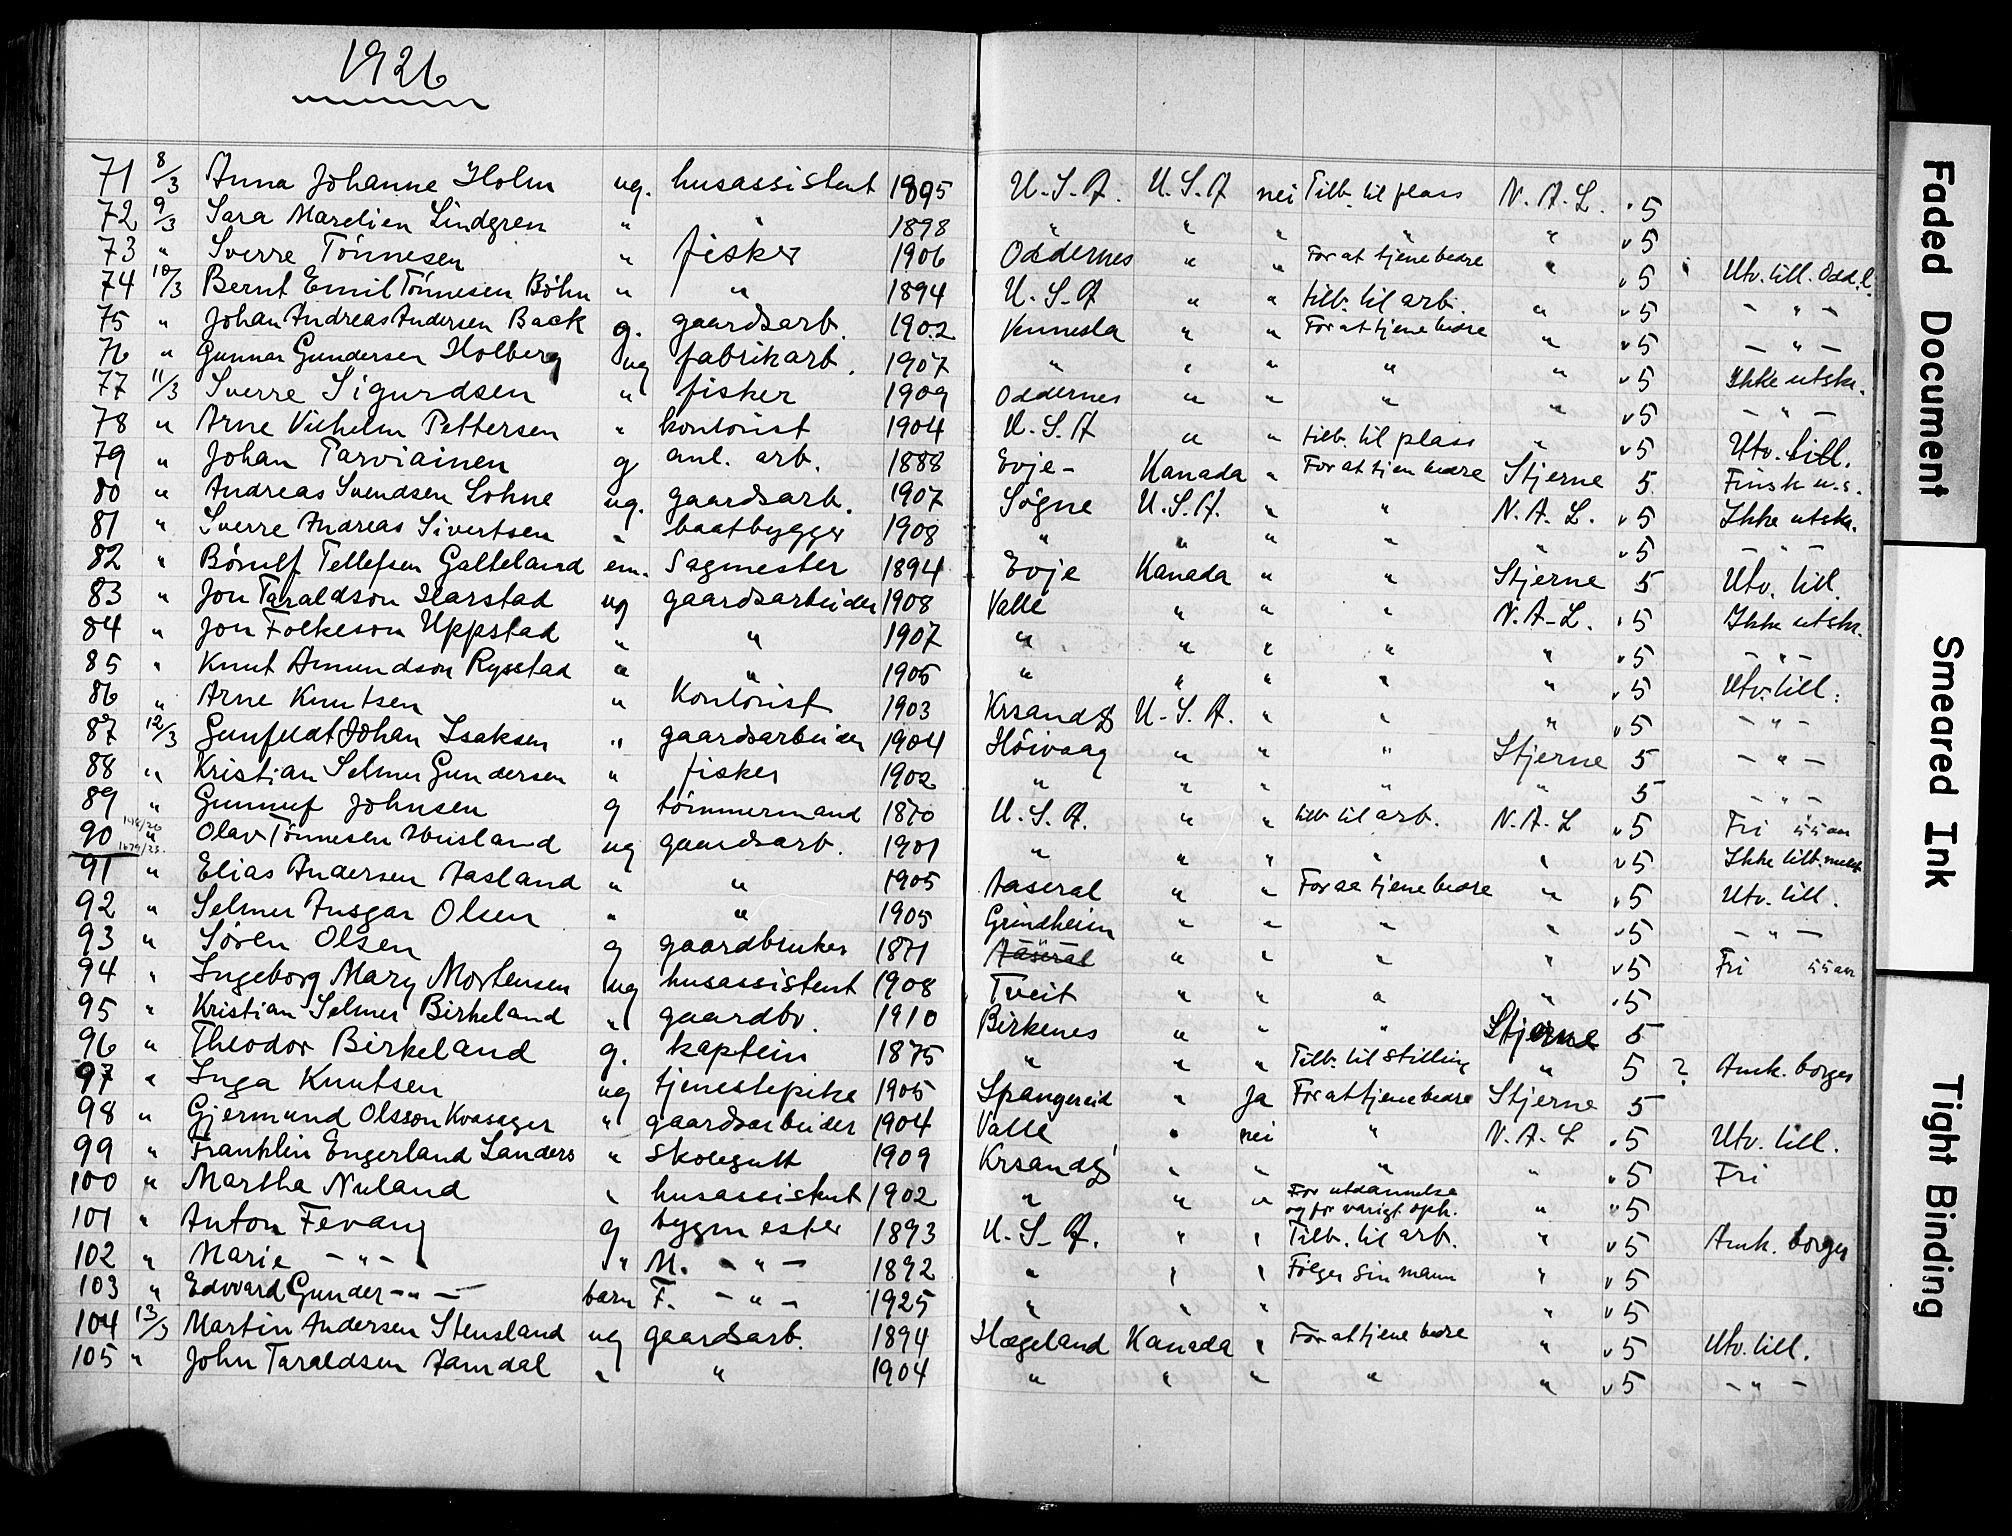 1926
71 8/3 Anna Johanne Holm ug. husassistent 1895 U.S.A. U.S.A nei Tilb. til plass N.A.L. 5
72 9/3 Sara Marelien Lindgren " " 1898 " " " " " v 5
73 " Sverre Tønnesen " fisker 1906 Oddernes " " For at tjene bedre " v 5 Utv. till. Odd.l.
74 10/3 Bernt Emil Tønnesen Bøhn " " 1894 U.S.A " " tilb. til arb. " v 5 - " -
75 " Johan Andreas Andersen Back g. gaardsarb. 1902 Vennesla " " For at tjene bedre " v 5 - " -
76 " Gunnar Gundersen Holberg ug fabrikarb. 1907 " " " " " v 5 Ikke utskr.
77 11/3 Sverre Sigurdsen " fisker 1909 Oddernes " " " " v 5 - " -
78 " Arne Vilhelm Pettersen " kontorist 1904 U.S.A " " tilb. til plass " v 5 Utv. till.
79 " Johan Tarviainen g anl. arb. 1888 Evje - Kanada " For at tjen bedre Stjerne 5 Finsk u.s.
80 " Andreas Svendsen Lohne ug. gaardsarb. 1907 Søgne U.S.A. " " N.A.L. v 5 Ikke utskr.
81 " Sverre Andreas Sivertsen " baatbygger 1908 " " " " " v 5 - " -
82 " Børulf Tellefsen Galteland em. Sagmester 1894 Evje Kanada " " Stjerne 5 Utv. till.
83 " Jon Taraldson Harstad ug gaardsarbeider 1908 Valle " " " N.A.L. 5 Ikke utskr.
84 " Jon Folkeson Uppstad " " 1907 " " " " " v 5 - " -
85 " Knut Amundson Rysstad " " 1905 " " " " " v 5 Utv. till.
86 " Arne Knutsen " Kontorist 1903 Krsand S U.S.A. " " " v 5 - " -
87 12/3 Gunfeldt Johan Isaksen " gaardsarbeider 1904 Høivaag " " " Stjerne 5 - " -
88 " Kristian Selmer Gundersen " fisker 1902 " " " " " 5 - " -
89 " Gunnuf Johnsen g tømmermand 1870 U.S.A. " " tilb. til arb. N.A.L v 5 Fri 55 aar
90 " Olav Tønnesen Husland ug gaardsarb. 1901 " " " " " v 5 Ikke tilb.
91 " Elias Andersen Aasland " " 1905 Aaseral " " For at tjene bedre " v 5 Utv. till.
92 " Selmer Ansgar Olsen " " 1905 Grindheim " " " " v 5 - " -
93 " Søren Olsen g gaardbruker 1871 Aaseral " " " " v 5 Fri 55 aar
94 " Ingeborg Mary Mortensen ug husassistent 1908 Tveit " " " " 5
95 " Kristian Selmer Birkeland " gaardbr. 1910 Birkenes " " " Stjerne 5
96 " Theodor Birkeland g. kaptein 1875 " " " Tilb. til stilling " 5 ? Amk. borger
97 " Inga Knutsen ug tjenestepike 1905 Spangereid " Ja For at tjene bedre Stjerne 5
98 " Gjermund Olsson Kvasager " gaardsarbeider 1904 Valle " nei " N.A.L 5 Utv. till.
99 " Franklin Engerland Sanders " skolegutt 1909 Krsand S " " " " v 5 Fri
100 " Martha Nuland " husassistent 1902 " " " For utdannelse og for varigt oph. " v 5
101 " Anton Fevang g bygmester 1893 U.S.A. " " Tilb. til arb. " v 5 Amk. borger
102 " Marie - " - " M. - " - 1892 " " " Følger sin mann " v 5
103 " Edvard Gunder - " - barn F. - " - 1925 " " " " v 5
104 13/3 Martin Andersen Stensland ug gaardsarb. 1894 Hægeland Kanada " For at tjene bedre " v 5 Utv. till.
105 " John Taraldsen Aamdal " " 1904 " " " " " v 5 - " -
Faded Document
Smeared Ink
Tight Binding